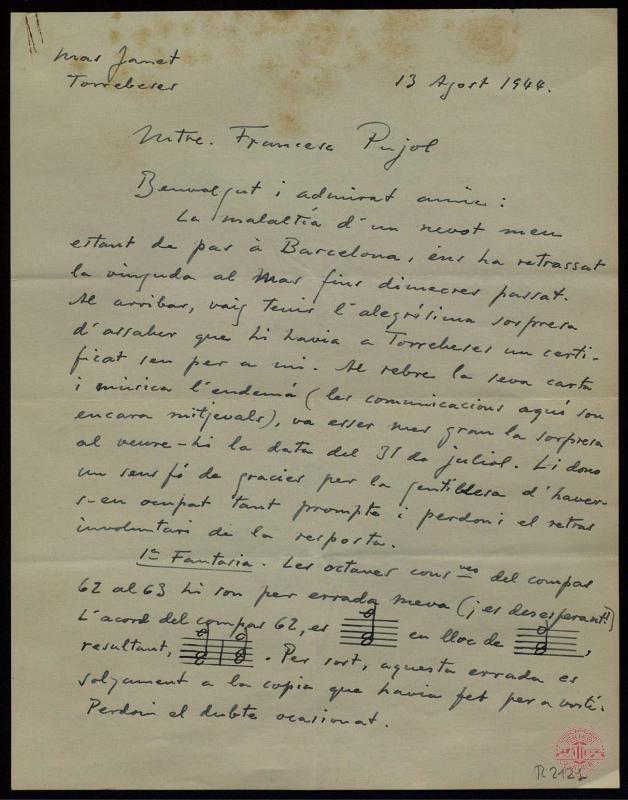 Mas Janet
Torrebeses
13 Agost 1944.
Mtre. Francesc Pujol
Benvolgut i admirat amic:
La malaltía d'un nevot meu
estant de pas à Barcelona, ens ha retrassat
la vinguda al Mas fins dimecres passat.
Al arribar, vaig tenir l'alegrísima sorpresa
d'assaber que hi havia a Torrebeses un certi-
ficat seu per a mi. Al rebre la seva carta
i música l'endemá (les comunicacions aquí son
encara mitjevals), va esser mes gran la sorpresa
al veure-hi la data del 31 de juliol. Li dono
un sens fí de gracies per la gentilesa d'haver-
s-en ocupat tant prompte i perdoni el retras
involuntari de la resposta.
1ª Fantasia. Les octaves cons.ves del compas
62 al 63 hi son per errada meva (¡es desesperant!)
L'acord del compas 62, es en lloc de ,
resultant, . Per sort, aquesta errada es
solzament a la copia que havia fet per a vosté.
Perdoni el dubte ocasionat.
R 2121